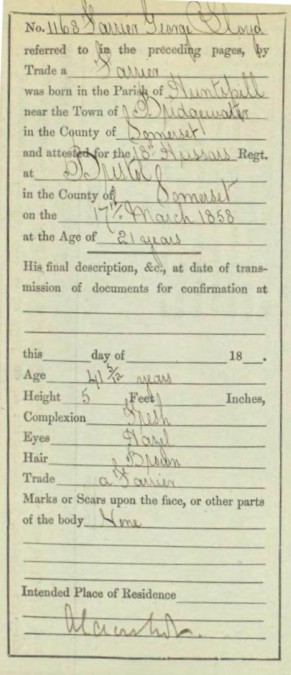 No. 1168 Farrier George Lloyd
referred to in the preceding pages, by
Trade a Farrier
was born in the Parish of Huntspill
near the Town of Bridgewater
in the County of Somerset
and attested for the 18th Hussars Regt.
at Bristol
in the County of Somerset
on the 17th March 1858
at the Age of 21 years
His final description, &c., at date of trans-
mission of documents for confirmation at
this day of 18 .
Age 41 5/12 years
Height 5 Feet Inches,
Complexion Fresh
Eyes Hazel
Hair Brown
Trade a Farrier
Marks or Scars upon the face, or other parts
of the body None
Intended Place of Residence
Aldershot.